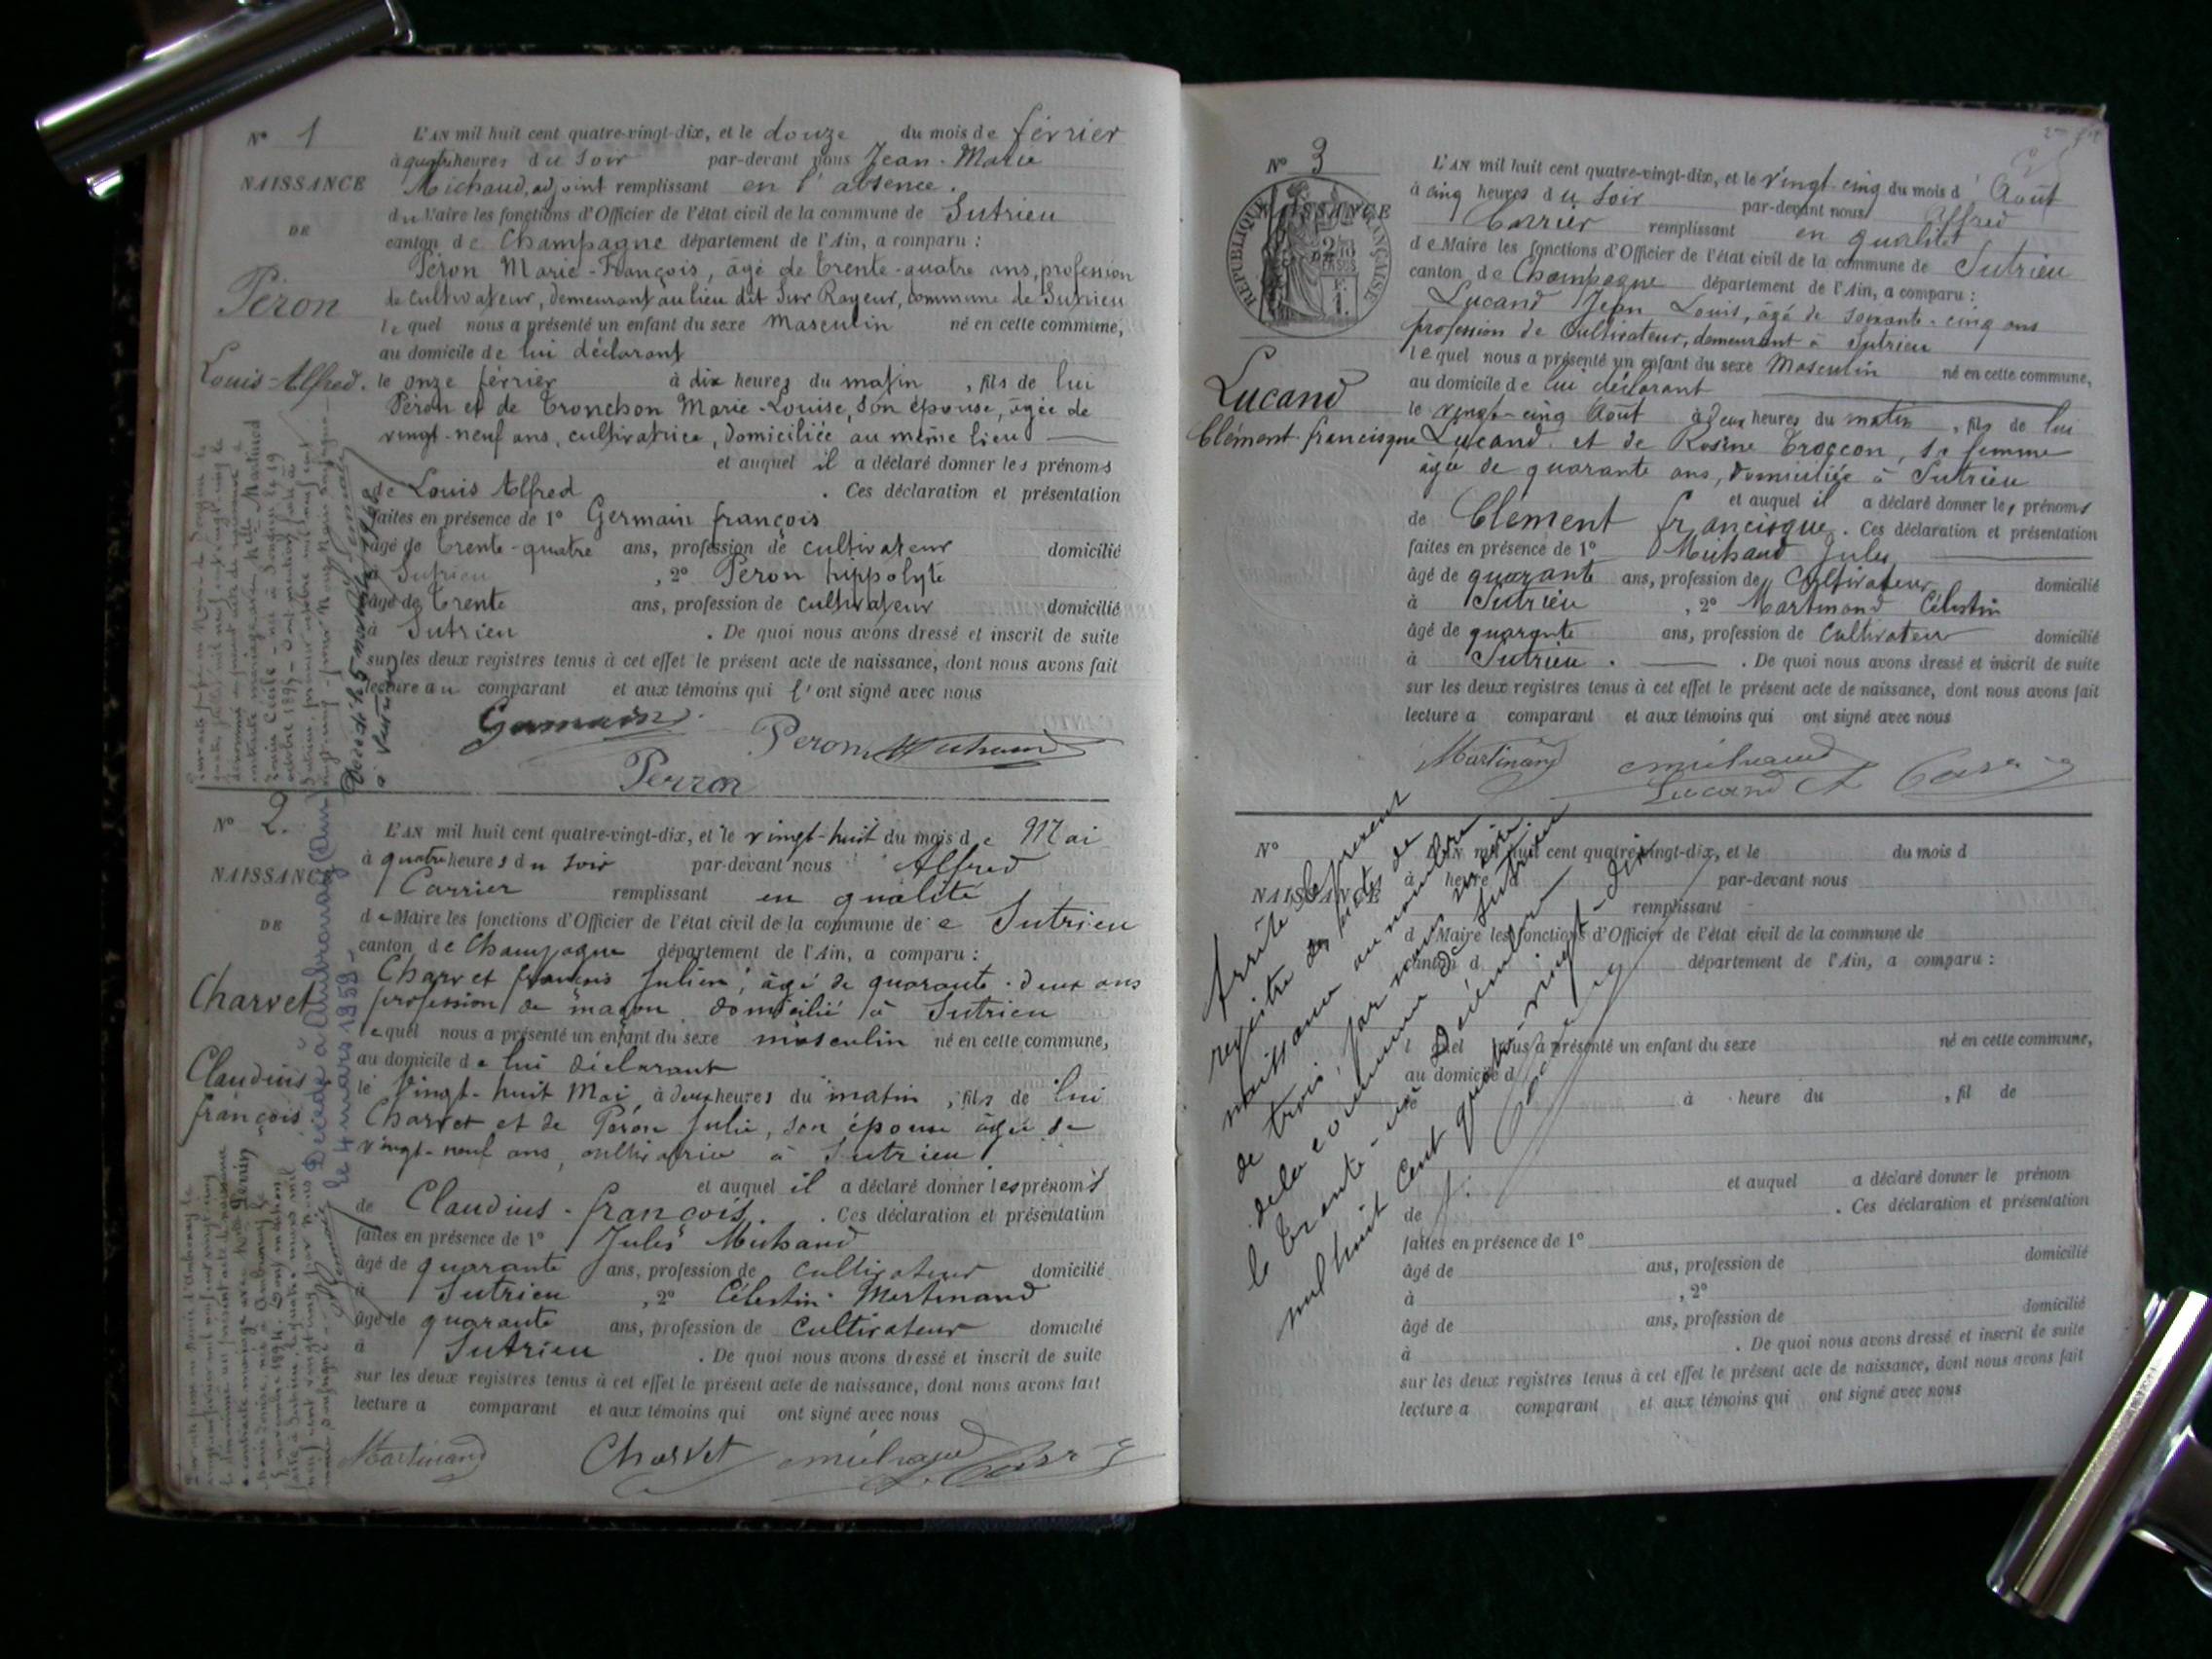 N° 1
NAISSANCE
DE
Péron
Louis-Alfred.
L'AN mil huit cent quatre-vingt-dix, et le douze du mois de février
à quatre heures du soir par-devant nous Jean-Marie
Michaud, adjoint remplissant en l'absence.
du Maire les fonctions d'Officier de l'état civil de la commune de Sutrieu
canton de Champagne département de l'Ain, a comparu :
Péron Marie-François, âgé de trente-quatre ans, profession
de cultivateur, demeurant au lieu dit Sur Rayeur, commune de Sutrieu
lequel nous a présenté un enfant du sexe masculin né en cette commune,
au domicile de lui déclarant
le onze février à dix heures du matin , fils de lui
Péron et de Tronchon Marie-Louise, son épouse, âgée de
vingt-neuf ans, cultivatrice, domiciliée au même lieu
et auquel il a déclaré donner les prénoms
de Louis Alfred . Ces déclaration et présentation
faites en présence de 1° Germain françois
âgé de trente-quatre ans, profession de cultivateur domicilié
à Sutrieu , 2° Péron hippolyte
âgé de trente ans, profession de cultivateur domicilié
à Sutrieu . De quoi nous avons dressé et inscrit de suite
sur les deux registres tenus à cet effet le présent acte de naissance, dont nous avons fait
lecture au comparant et aux témoins qui l'ont signé avec nous
Germain
Peron Michaud
Perron
N° 2.
NAISSANCE
DE
Charvet
Claudius
françois
Décédé à Ambronay (Ain)
le 4 mars 1959
L'AN mil huit cent quatre-vingt-dix, et le vingt-huit du mois de Mai
à quatre heures du soir par-devant nous Alfred
Carrier remplissant en qualité
de Maire les fonctions d'Officier de l'état civil de la commune de Sutrieu
canton de Champagne département de l'Ain, a comparu :
Charvet françois Julien, âgé de quarante-deux ans
profession de maçon domicilié à Sutrieu
lequel nous a présenté un enfant du sexe masculin né en cette commune,
au domicile de lui déclarant
le Vingt-huit Mai à deux heures du matin , fils de lui
Charvet et de Péron Julie, son épouse âgée de
vingt-neuf ans, cultivatrice à Sutrieu
et auquel il a déclaré donner les prénoms
de Claudius-françois. . Ces déclaration et présentation
faites en présence de 1° Jules Michaud
âgé de quarante ans, profession de cultivateur domicilié
à Sutrieu , 2° Célestin Martinand
âgé de quarante ans, profession de cultivateur domicilié
à Sutrieu . De quoi nous avons dressé et inscrit de suite
sur les deux registres tenus à cet effet le présent acte de naissance, dont nous avons fait
lecture a comparant et aux témoins qui ont signé avec nous
Martinand Charvet Michaud A. Carrier
N° 3
NAISSANCE
RÉPUBLIQUE FRANÇAISE
Lucand
Clément-francisque
L'AN mil huit cent quatre-vingt-dix, et le vingt-cinq du mois d'Août
à cinq heures du soir par-devant nous Alfred
Carrier remplissant en qualité
de Maire les fonctions d'Officier de l'état civil de la commune de Sutrieu
canton de Champagne département de l'Ain, a comparu :
Lucand Jean Louis, âgé de soixante-cinq ans
profession de Cultivateur, demeurant à Sutrieu
lequel nous a présenté un enfant du sexe Masculin né en cette commune,
au domicile de lui déclarant
le vingt-cinq Août à deux heures du matin , fils de lui
Lucand et de Rosine Trocçon, sa femme
âgée de quarante ans, domiciliée à Sutrieu
et auquel il a déclaré donner les prénoms
de Clément francisque . Ces déclaration et présentation
faites en présence de 1° Michaud Jules
âgé de quarante ans, profession de Cultivateur domicilié
à Sutrieu , 2° Martinand Célestin
âgé de quarante ans, profession de Cultivateur domicilié
à Sutrieu . De quoi nous avons dressé et inscrit de suite
sur les deux registres tenus à cet effet le présent acte de naissance, dont nous avons fait
lecture a comparant et aux témoins qui ont signé avec nous
Martinand Michaud
Lucand A Carrier
N°
NAISSANCE
L'AN mil huit cent quatre-vingt-dix, et le du mois d
à heure d par-devant nous
remplissant
d Maire les fonctions d'Officier de l'état civil de la commune de
canton d département de l'Ain, a comparu :
l quel nous a présenté un enfant du sexe né en cette commune,
au domicile d
le à heure du , fil de
et auquel a déclaré donner le prénom
de . Ces déclaration et présentation
faites en présence de 1°
âgé de ans, profession de domicilié
à , 2°
âgé de ans, profession de domicilié
à . De quoi nous avons dressé et inscrit de suite
sur les deux registres tenus à cet effet le présent acte de naissance, dont nous avons fait
lecture a comparant et aux témoins qui ont signé avec nous
Arrêté le présent
registre des actes de
naissance au nombre
de trois, par nous maire
de la commune de Sutrieu
le trente-un Décembre
mil huit cent quatre-vingt-dix